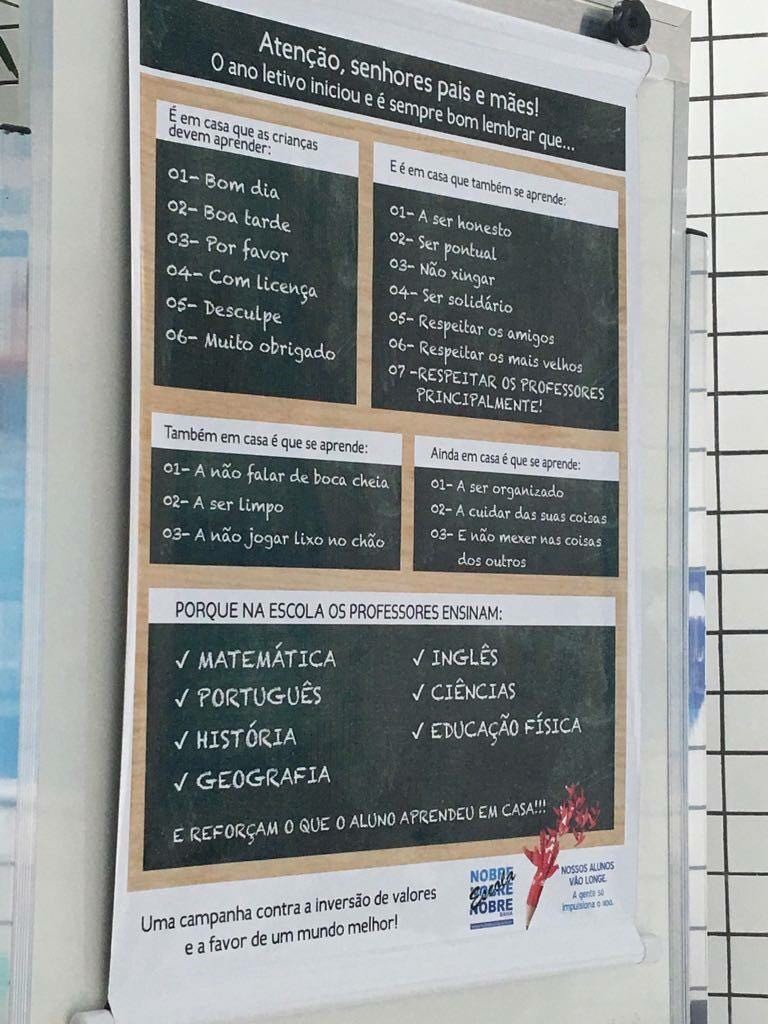 Atenção, senhores pais e mães!
O ano letivo iniciou e é sempre bom lembrar que...
É em casa que as crianças
devem aprender:
01- Bom dia
02- Boa tarde
03- Por favor
04- Com licença
05- Desculpe
06- Muito obrigado
E é em casa que também se aprende:
01- A ser honesto
02- Ser pontual
03- Não xingar
04- Ser solidário
05- Respeitar os amigos
06- Respeitar os mais velhos
07 -RESPEITAR OS PROFESSORES
PRINCIPALMENTE!
Também em casa é que se aprende:
01- A não falar de boca cheia
02- A ser limpo
03- A não jogar lixo no chão
Ainda em casa é que se aprende:
01- A ser organizado
02- A cuidar das suas coisas
03- E não mexer nas coisas
dos outros
PORQUE NA ESCOLA OS PROFESSORES ENSINAM:
√ MATEMÁTICA
√ PORTUGUÊS
√ HISTÓRIA
√ GEOGRAFIA
√ INGLÊS
√ CIÊNCIAS
√ EDUCAÇÃO FÍSICA
E REFORÇAM O QUE O ALUNO APRENDEU EM CASA!!!
Uma campanha contra a inversão de valores
e a favor de um mundo melhor!
NOBRE
Escola
NOBRE
BAHIA
NOSSOS ALUNOS
VÃO LONGE.
A gente só
impulsiona o voo.